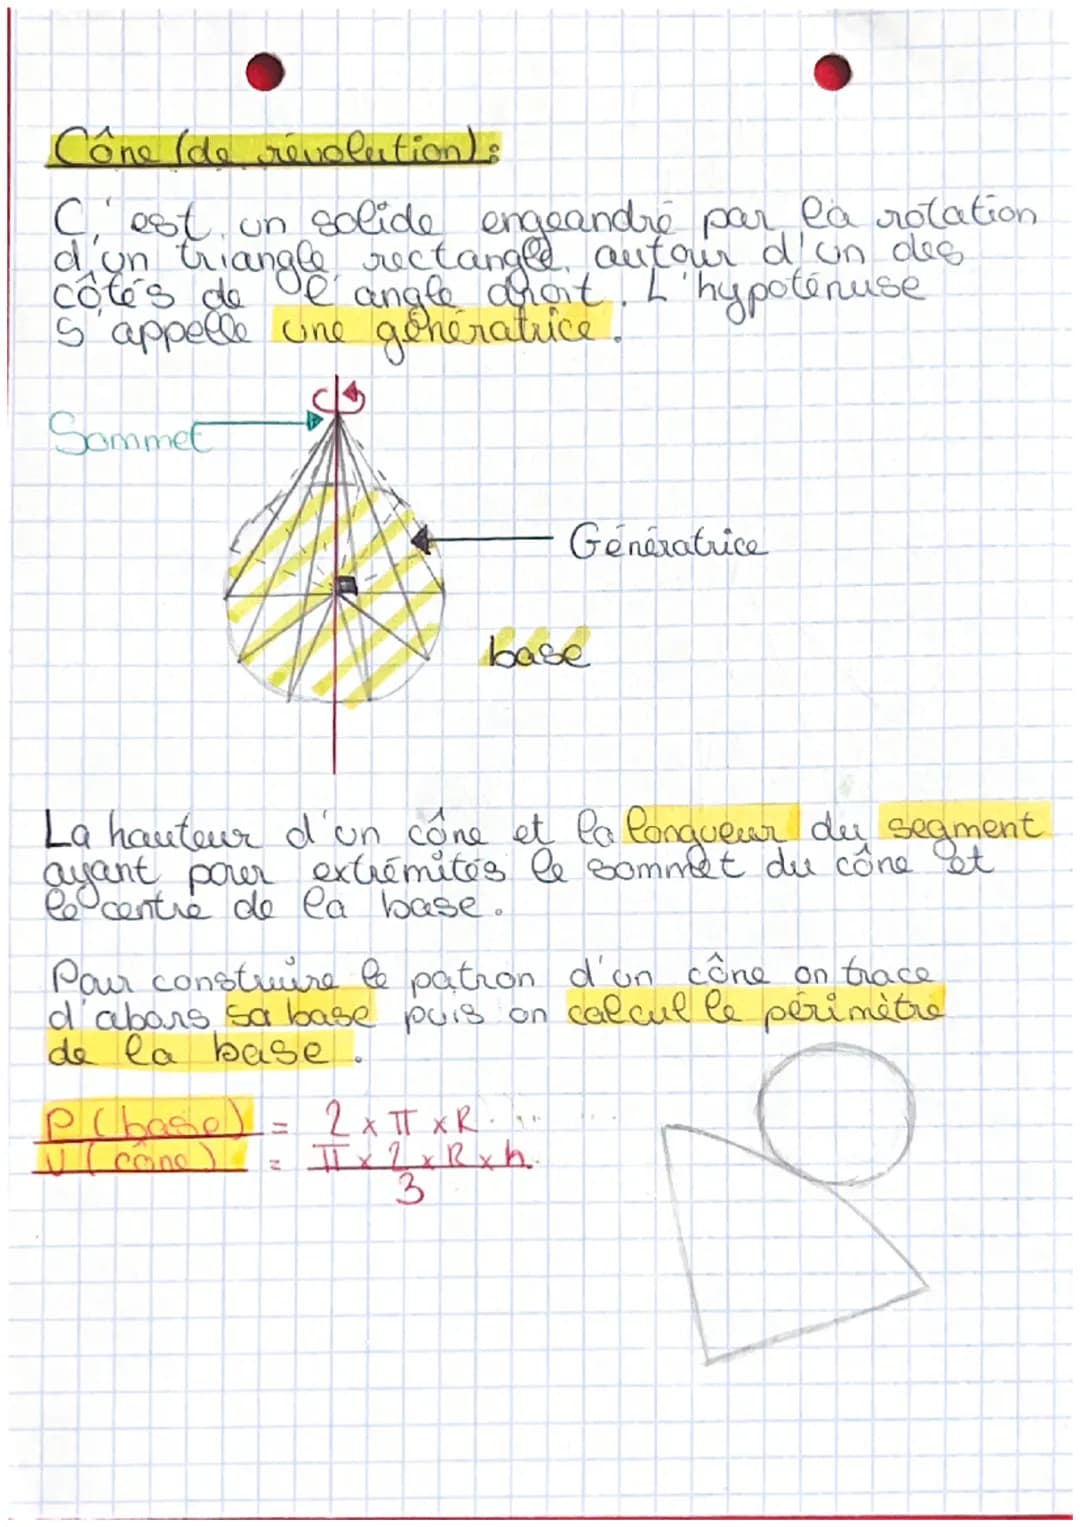 Cône (de révolution):
C'est un solide engeandré par la rotation
d'un triangle rectangle autour d'un des
côtés de l'angle droit. L'hypoténuse
s'appelle une génératrice.
Sommet
Génératrice
base
La hauteur d'un cône et la longueur du segment
ayant pour extrémités le sommet du cône et
le centre de la base.
Pour construire le patron d'un cône on trace
d'abors sa base puis on calcul le périmètre
de la base.
P(base) = 2 x π x R
V(cône) = π x 2 x R x h
3